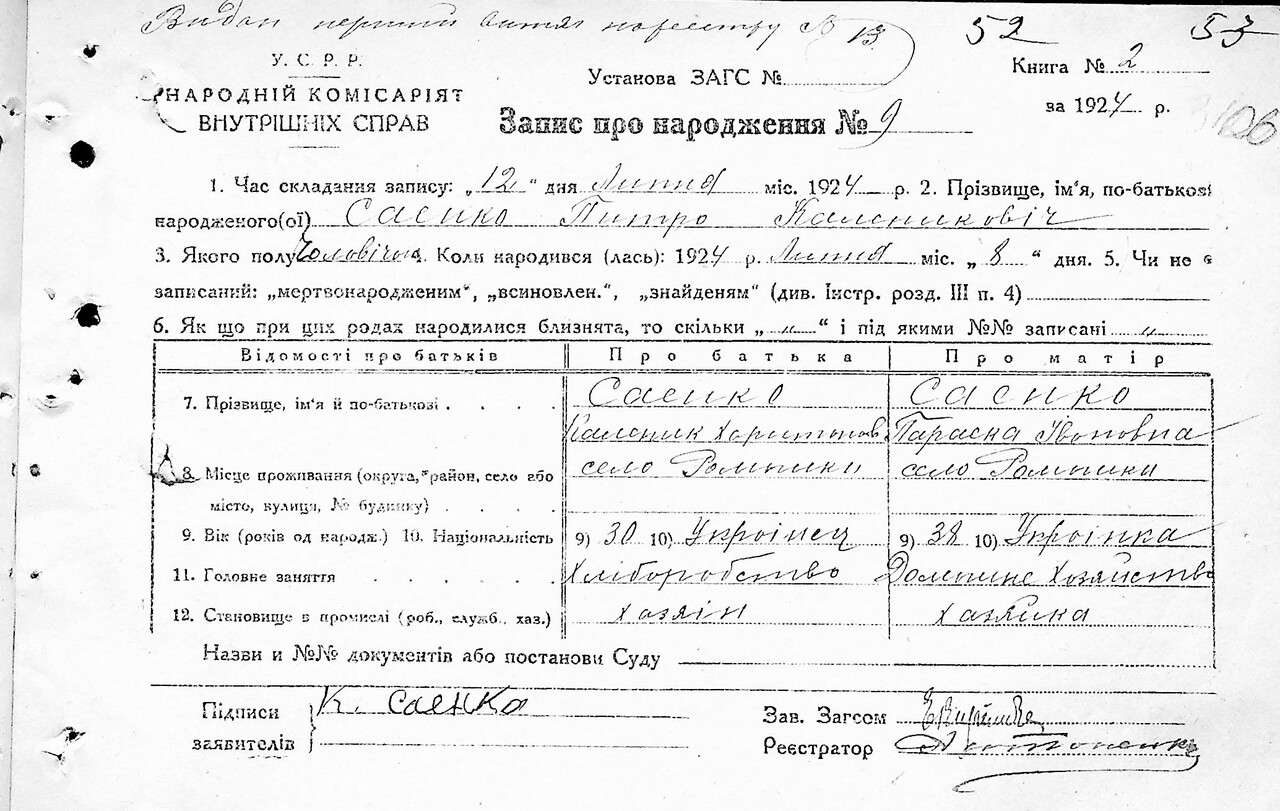 Видан перший витяг по реєстру № 13
52 53
У. С. Р. Р.
НАРОДНІЙ КОМІСАРІЯТ
ВНУТРІШНІХ СПРАВ
Установа ЗАГС №
Запис про народження № 9
Книга № 2
за 1924 р.
106
1. Час складання запису: „12“ дня Липня міс. 1924 р. 2. Прізвище, ім'я, по-батькові
народженого(ої) Саєнко Питро Каленикович
3. Якого полу Чоловічої 4. Коли народився (лась): 1924 р. Липня міс. „8“ дня. 5. Чи не є
записаний: „мертвонародженим“, „всиновлен.“, „знайденям“ (див. Інстр. розд. III п. 4)
6. Як що при цих родах народилися близнята, то скільки „ „ “ і під якими №№ записані „
Відомості про батьків Про батька Про матір
7. Прізвище, ім'я й по-батькові . . . . Саєнко Саєнко
Каленик Харитонов Параска Івановна
8. Місце проживання (округа, район, село або село Ромашки село Ромашки
місто, вулиця, № будинку) . . . .
9. Вік (років од народж.) 10. Національність 9) 30 10) Украінец 9) 38 10) Украінка
11. Головне заняття . . . . . Хліборобство Домашне Хозяйство
12. Становище в промислі (роб., служб., хаз.) хазяін хазяйка
Назви и №№ документів або постанови Суду
Підписи К. Саенко
заявителів
Зав. Загсом
Реєстратор